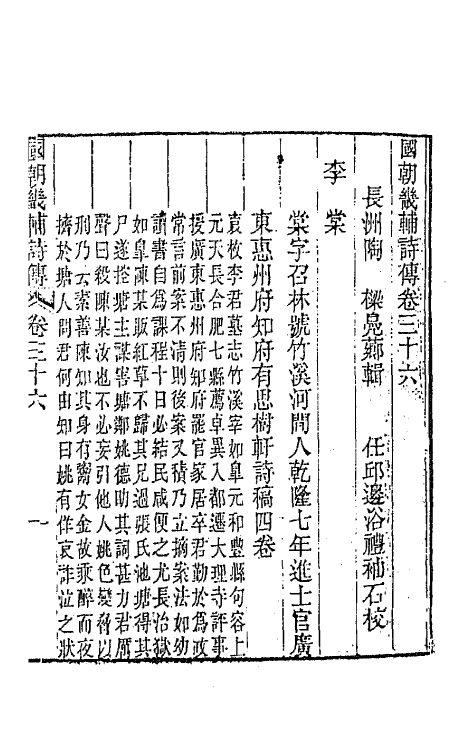 國朝畿輔詩傳卷三十六
長洲陶　樑鳧薌輯　任邱邊浴禮袖石校
李棠
棠字召林號竹溪河間人乾隆七年進士官廣
東惠州府知府有思樹軒詩稿四卷
袁枚李君墓志竹溪宰如臯元和豐縣句容上
元天長合肥七縣薦卓異入都遷大理寺評事
授廣東惠州府知府罷官家居卒君勤於為政
常言前案不清則後案又積乃立摘案法如幼
讀書自為課程十日必結民咸便之尤長治獄
如臯陳某販紅草不歸其兄過張氏池塘得其
尸遂控塘主謀害塘鄰姚德助其詞甚力君厲
聲曰殺陳某汝也不必妄引他人姚色變脅以
刑乃云素善陳知其身有鬻女金故乘醉而夜
擠於塘人問君何由知曰姚有佯哀詐泣之狀
國朝畿輔詩傳　卷三十六　一